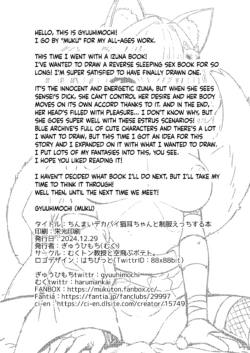 HELLO, THIS IS GYUUHIMOCHI!
I GO BY "MUKU" FOR MY ALL-AGES WORK.
THIS TIME I WENT WITH A IZUNA BOOK!
I'VE WANTED TO DRAW A REVERSE SLEEPING SEX BOOK FOR SO
LONG! I'M SUPER SATISFIED TO HAVE FINALLY DRAWN ONE.
IT'S THE INNOCENT AND ENERGETIC IZUNA, BUT WHEN SHE SEES
SENSEI'S DICK, SHE CAN'T CONTROL HER DESIRE AND HER BODY
MOVES ON ITS OWN ACCORD THANKS TO IT. AND IN THE END,
HER HEAD'S FILLED WITH PLEASURE... I DON'T KNOW WHY, BUT
SHE GOES SUPER WELL WITH THESE ESTRUS SCENARIOS!
BLUE ARCHIVE'S FULL OF CUTE CHARACTERS AND THERE'S A LOT
I WANT TO DRAW, BUT THIS TIME I GOT AN IDEA FOR THIS
STORY AND I EXPANDED ON IT WITH WHAT I WANTED TO DRAW.
I PUT LOTS OF MY FANTASIES INTO THIS, YOU SEE.
I HOPE YOU LIKED READING IT!
I HAVEN'T DECIDED WHAT BOOK I'LL DO NEXT, BUT I'LL TAKE MY
TIME TO THINK IT THROUGH!
WELL THEN, UNTIL THE NEXT TIME WE MEET!
GYUUHIMOCHI (MUKU)
タイトル：ちんまいデカパイ猫耳ちゃんと制服えっちする本
印刷：栄光印刷
発行日：2024.12.29
発行者：ぎゅうひもち(むく)
サークル：むくトン教授と空飛ぶポテト。
ロゴデザイン：はちびっと(TwitterID：88x88bit)
ぎゅうひもちtwittr：gyuuhimochi
むくtwittr：harumankai
FANBOX：https://mukuton.fanbox.cc/
Fantia：https://fantia.jp/fanclubs/29997
ci-en：https://ci-en.dlsite.com/creator/15749